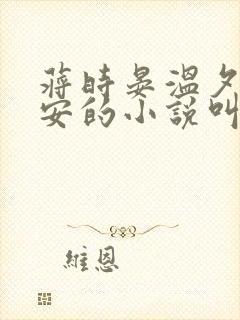 蔣時晏溫夕
安的小說叫
維恩